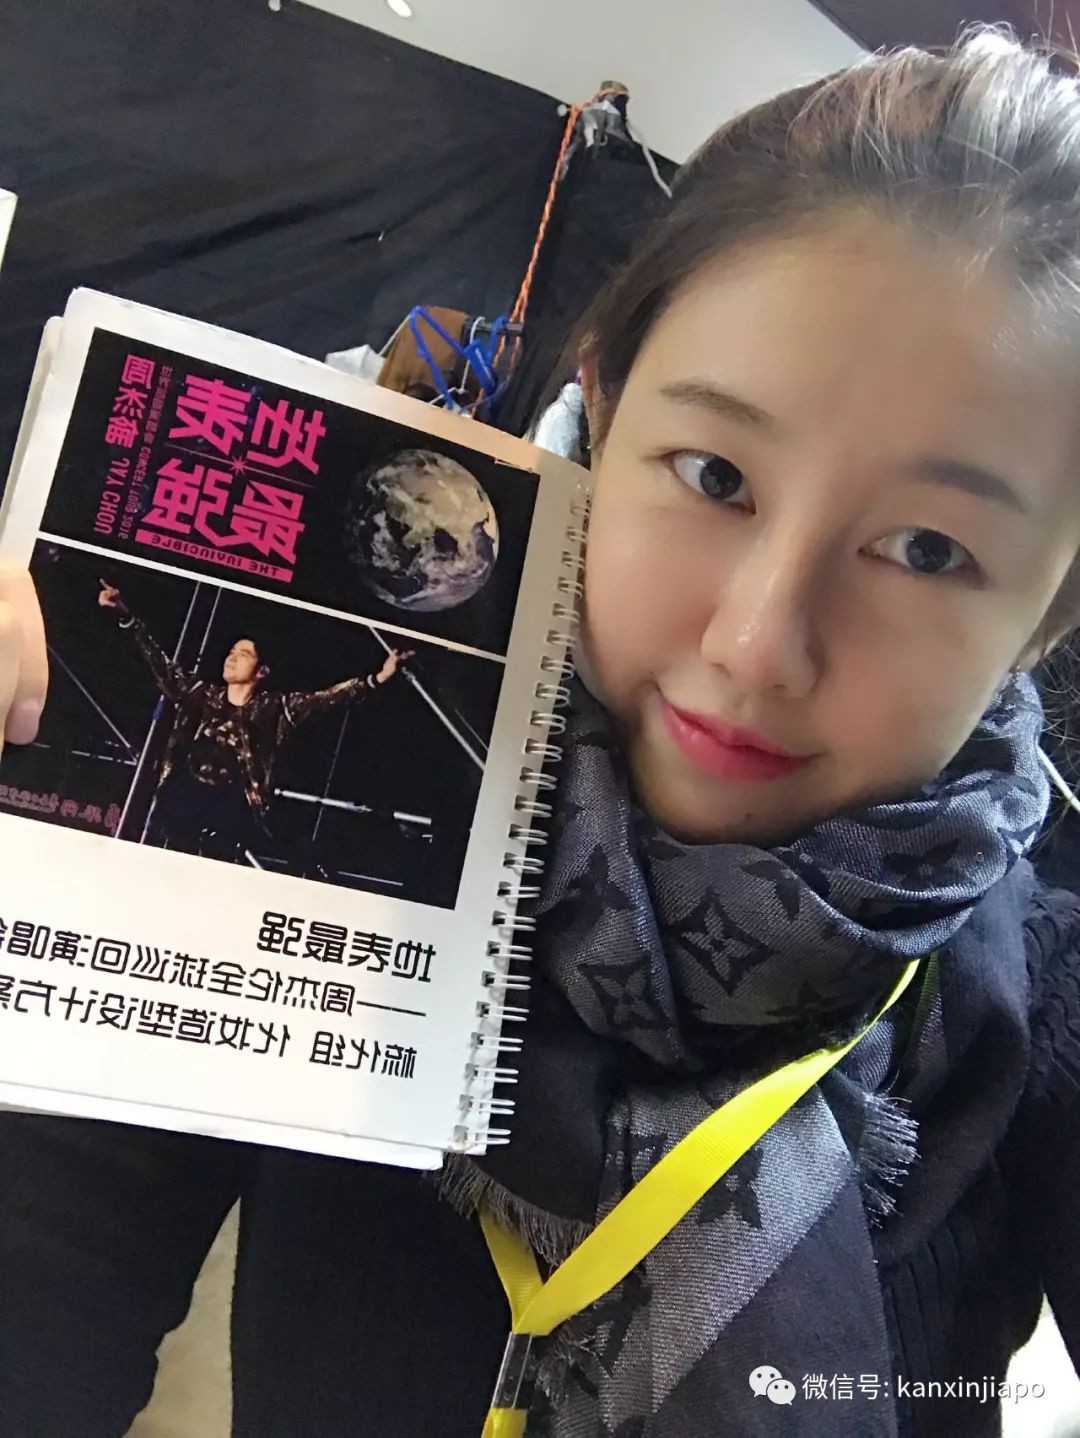 地表
最强
THE INVINCIBLE
周杰倫 JAY CHOU
CONCERT TOUR 2016
地表最强
——周杰伦全球巡回演唱会
梳化组 化妆造型设计方案
微信号: kanxinjiapo